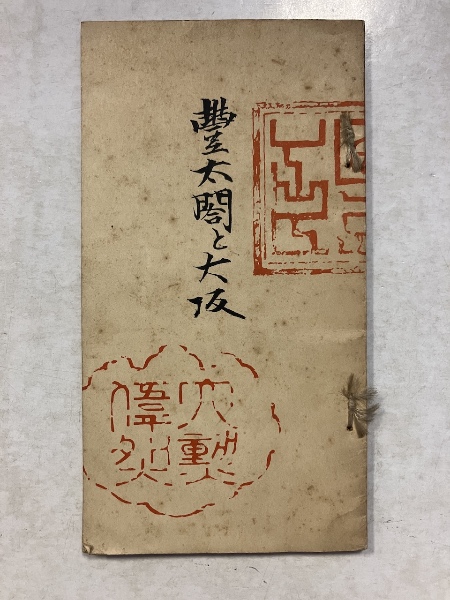 豐太閤と大阪
大勲
偉烈